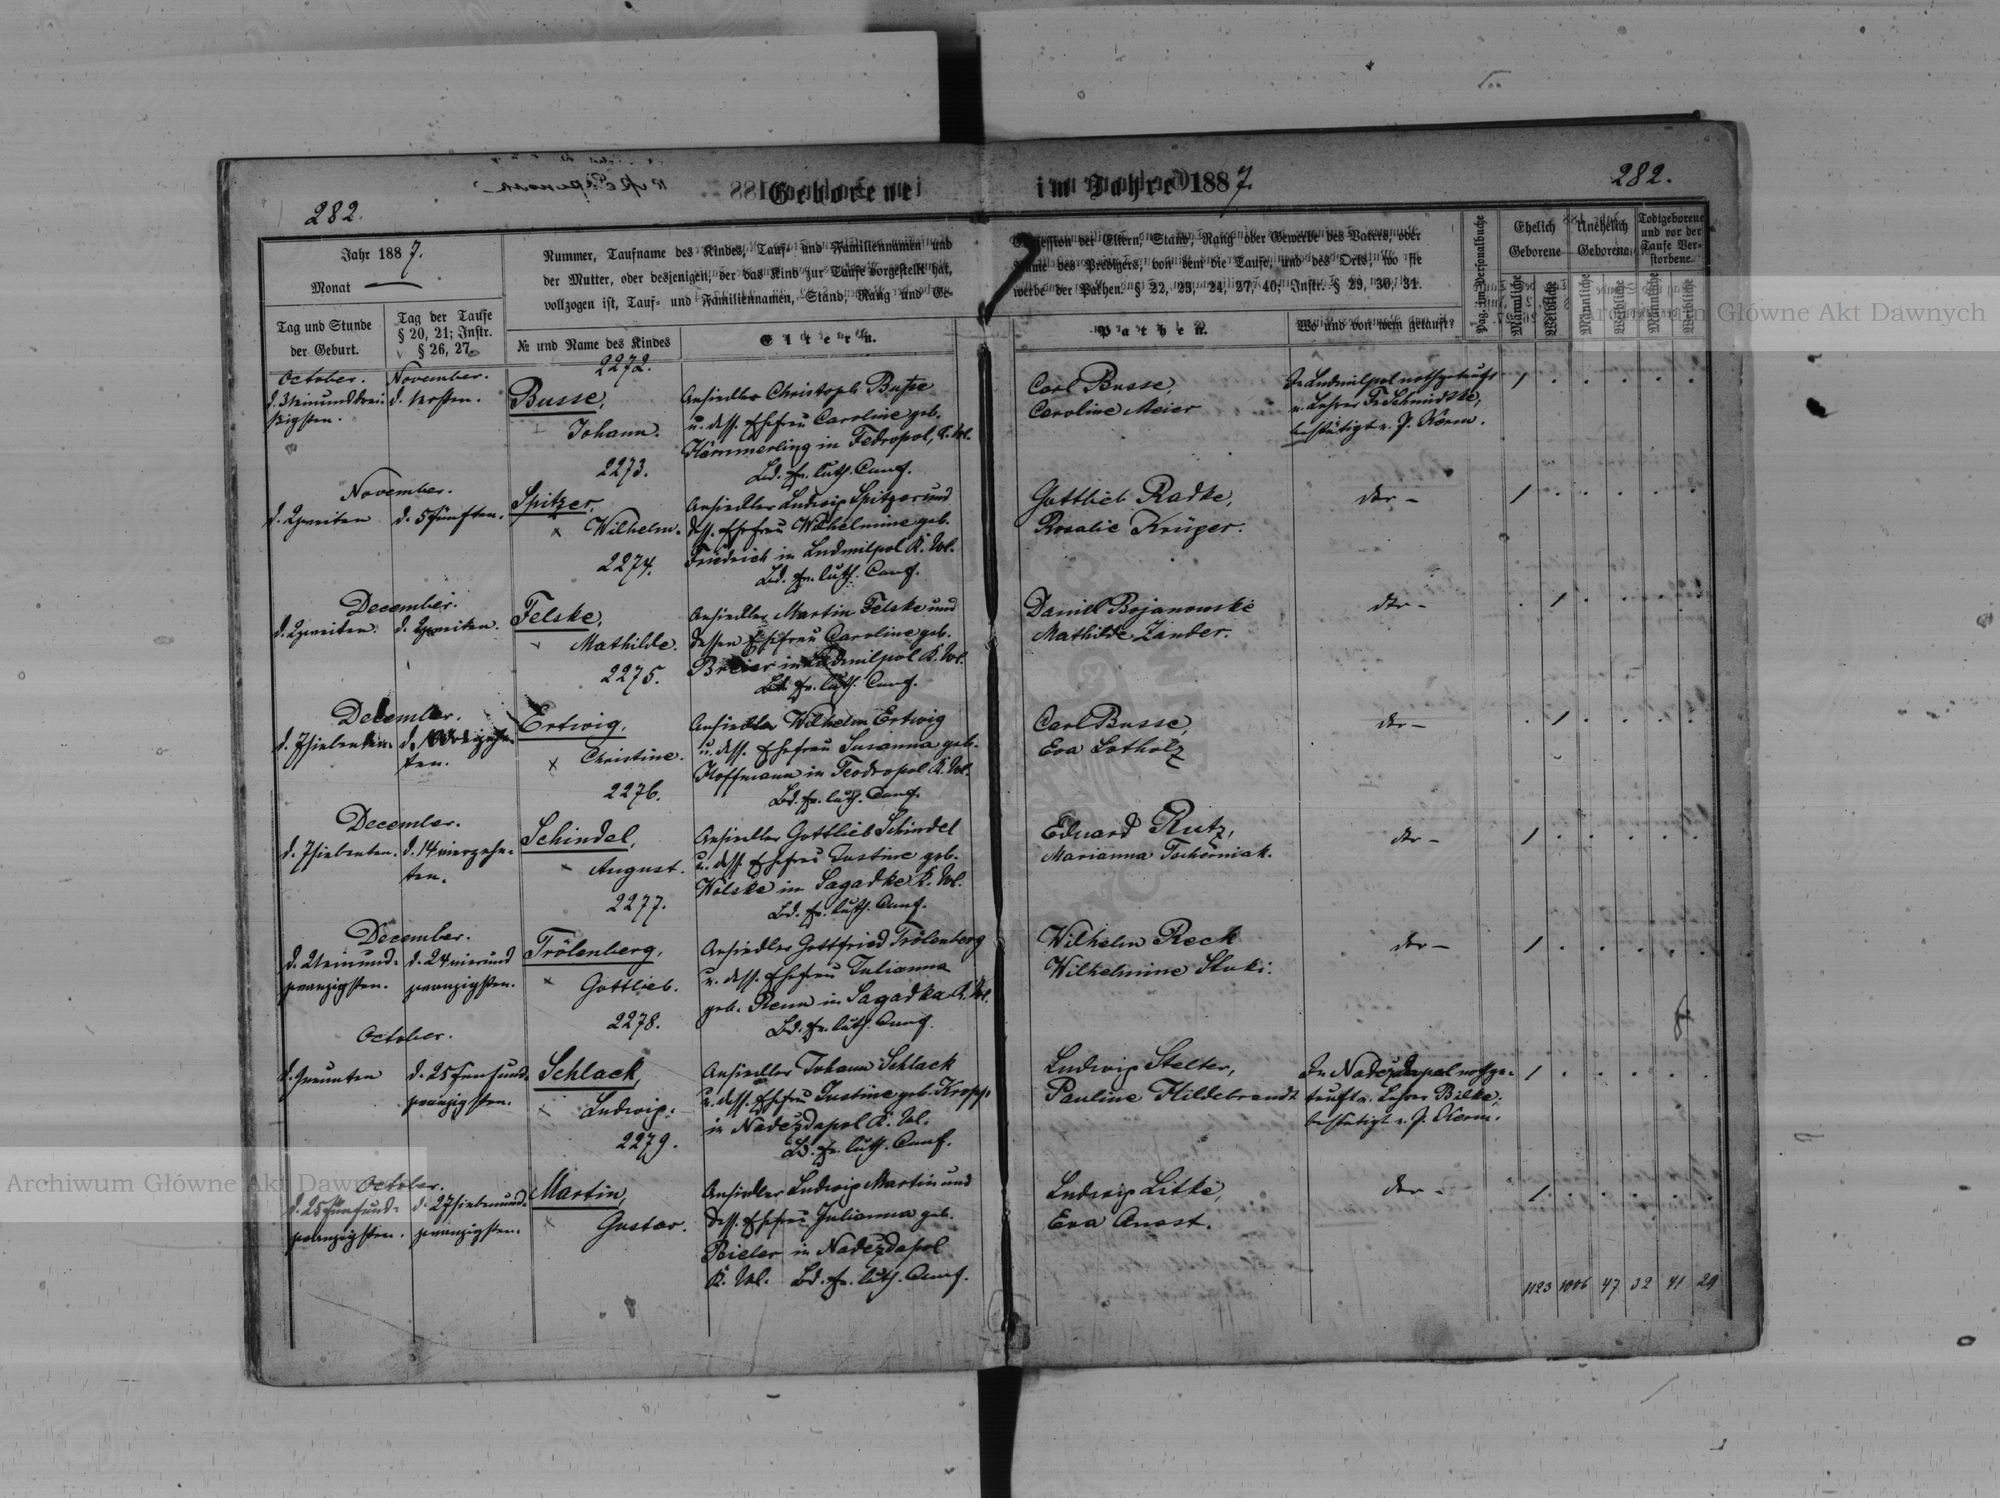 282.
Geborene
im Jahre 1887.
282.
Jahr 1887.
Monat
Tag und Stunde
der Geburt.
Tag der Taufe
§ 20, 21; Instr.
§ 26, 27.
Nummer, Taufname des Kindes, Tauf- und Familiennamen und
der Mutter, oder desjenigen, der das Kind zur Taufe vorgestellt hat,
vollzogen ist, Tauf- und Familiennamen, Stand, Rang und Ge-
№ und Name des Kindes
Eltern.
Confession der Eltern, Stand, Rang oder Gewerbe des Vaters, oder
Name des Predigers, von dem die Taufe, und des Orts, wo sie
werbe der Pathen. § 22, 23, 24, 27, 40; Instr. § 29, 30, 31.
Pathen.
Wo und von wem getauft?
Pag. im Personalbuche
Ehelich
Geborene
Unehelich
Geborene
Todtgeborene
und vor der
Taufe Ver-
storbene.
Männliche
Weibliche
Männliche
Weibliche
Männliche
Weibliche
2272.
October. November.
d. 31einunddrei- d. ersten.
ßigsten.
Busse,
Johann.
Ansiedler Christoph Busse
u. dess. Ehefrau Caroline geb.
Hämmerling in Fedropol, K. Wl.
Bd. ev. luth. Conf.
Carl Busse,
Caroline Meier
In Ludmilpol nothgetauft
v. Lehrer Fr. Schmidtke,
bestätigt v. P. Kerm.
1 . . . . .
2273.
November.
d. 2zweiten d. 5fünften.
Spitzer,
Wilhelm.
Ansiedler Ludwig Spitzer und
dess. Ehefrau Wilhelmine geb.
Friedrich in Ludmilpol K. Wl.
Bd. ev. luth. Conf.
Gottlieb Radke,
Rosalie Krüger.
dtr –
1 . . . . .
2274.
December.
d. 2zweiten. d. 2zweiten.
Felske,
Mathilde.
Ansiedler Martin Felske und
dessen Ehefrau Caroline geb.
Breier in Ludmilpol K. Wl.
Bd. ev. luth. Conf.
Daniel Bojanowski
Mathilde Zander.
dtr –
. 1 . . . .
2275.
December.
d. 7siebenten. d. 14vierzehn-
ten.
Ertwig,
Christine.
Ansiedler Wilhelm Ertwig
u. dess. Ehefrau Susanna geb.
Hoffmann in Teodropol K. Wl.
Bd. ev. luth. Conf.
Carl Busse,
Eva Lotholz
dtr –
. 1 . . . .
2276.
December.
d. 7siebenten. d. 14vierzehn-
ten.
Schindel,
August.
Ansiedler Gottlieb Schindel
u. dess. Ehefrau Justine geb.
Wolske in Sagadke K. Wl.
Bd. ev. luth. Conf.
Eduard Rutz,
Marianna Tschorniak.
dtr –
1 . . . . .
2277.
December.
d. 21einund- d. 24vierund
zwanzigsten. zwanzigsten.
Trölenberg,
Gottlieb.
Ansiedler Gottfried Trölenberg
u. dess. Ehefrau Julianna
geb. Renn in Sagadka K. Wl.
Bd. ev. luth. Conf.
Wilhelm Reck
Wilhelmine Sluki.
dtr –
1 . . . . .
2278.
October.
d. 9neunten d. 25fünfund-
zwanzigsten.
Schlack,
Ludwig.
Ansiedler Johann Schlack
u. dess. Ehefrau Justine geb. Kropp
in Nadezdapol K. Wl.
Bd. ev. luth. Conf.
Ludwig Stelter,
Pauline Hildebrandt
In Nadezdapol nothge-
tauft v. Lehrer Bilke,
bestätigt v. P. Kerm.
1 . . . . .
2279.
October.
d. 25fünfund- d. 27siebenund-
zwanzigsten. zwanzigsten.
Martin,
Gustav.
Ansiedler Ludwig Martin und
dess. Ehefrau Julianna geb.
Bieler in Nadezdapol
K. Wl. Bd. ev. luth. Conf.
Ludwig Litke,
Eva Anast.
dtr –
1 . . . . .
1123 1006 47 32 41 29
Archiwum Główne Akt Dawnych
Archiwum Główne Akt Dawnych